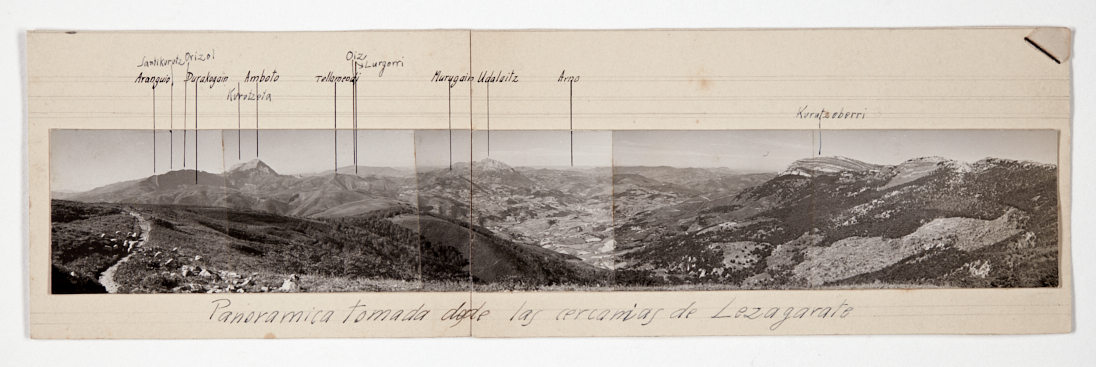 Santikurutz Orizol
Oiz
Lurgorri
Aranguio Durakogain Amboto Tellomendi Murugain Udalaitz Arno
Kurutzeta
Kurutzeberri
Panoramica tomada dsde las cercanias de Lezagarate